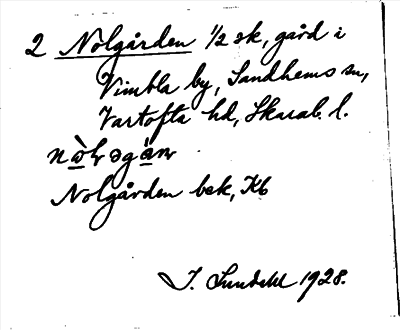 2 Nolgården 1/2 sk, gård i
Vimbla by, Sandhems sn,
Vartofta hd, Skarab. l.
Nolgården bek, Kb
J. Sundahl 1928.